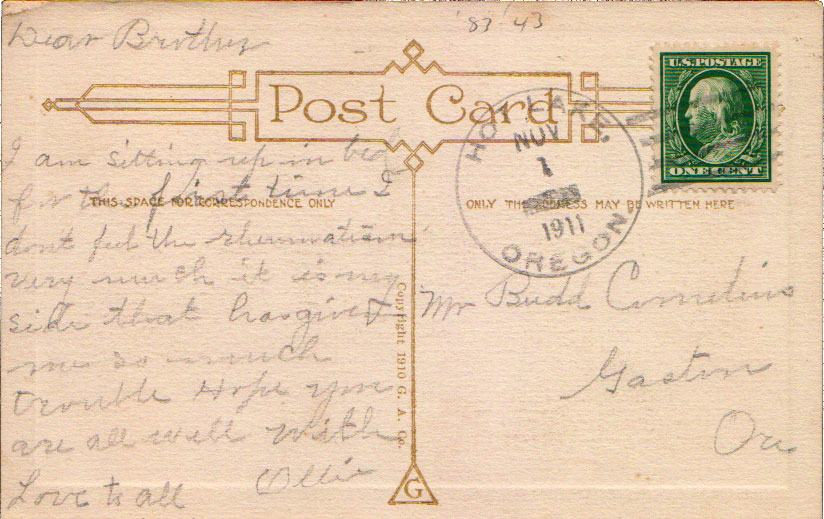 '83-'43
Dear Brother
Post Card
U.S. POSTAGE
ONE CENT
HOT LAKE
NOV
1
1911
OREGON
THIS SPACE FOR CORRESPONDENCE ONLY
ONLY THE ADDRESS MAY BE WRITTEN HERE
I am sitting up in bed
for the first time I
don't feel the rheumatism
very much it is my
side that has given
me so much
trouble Hope you
are all well with
Love to all Ollie
Mr Budd Cornelius
Gaston
Ore
Copyright 1910 G. A. Co.
G